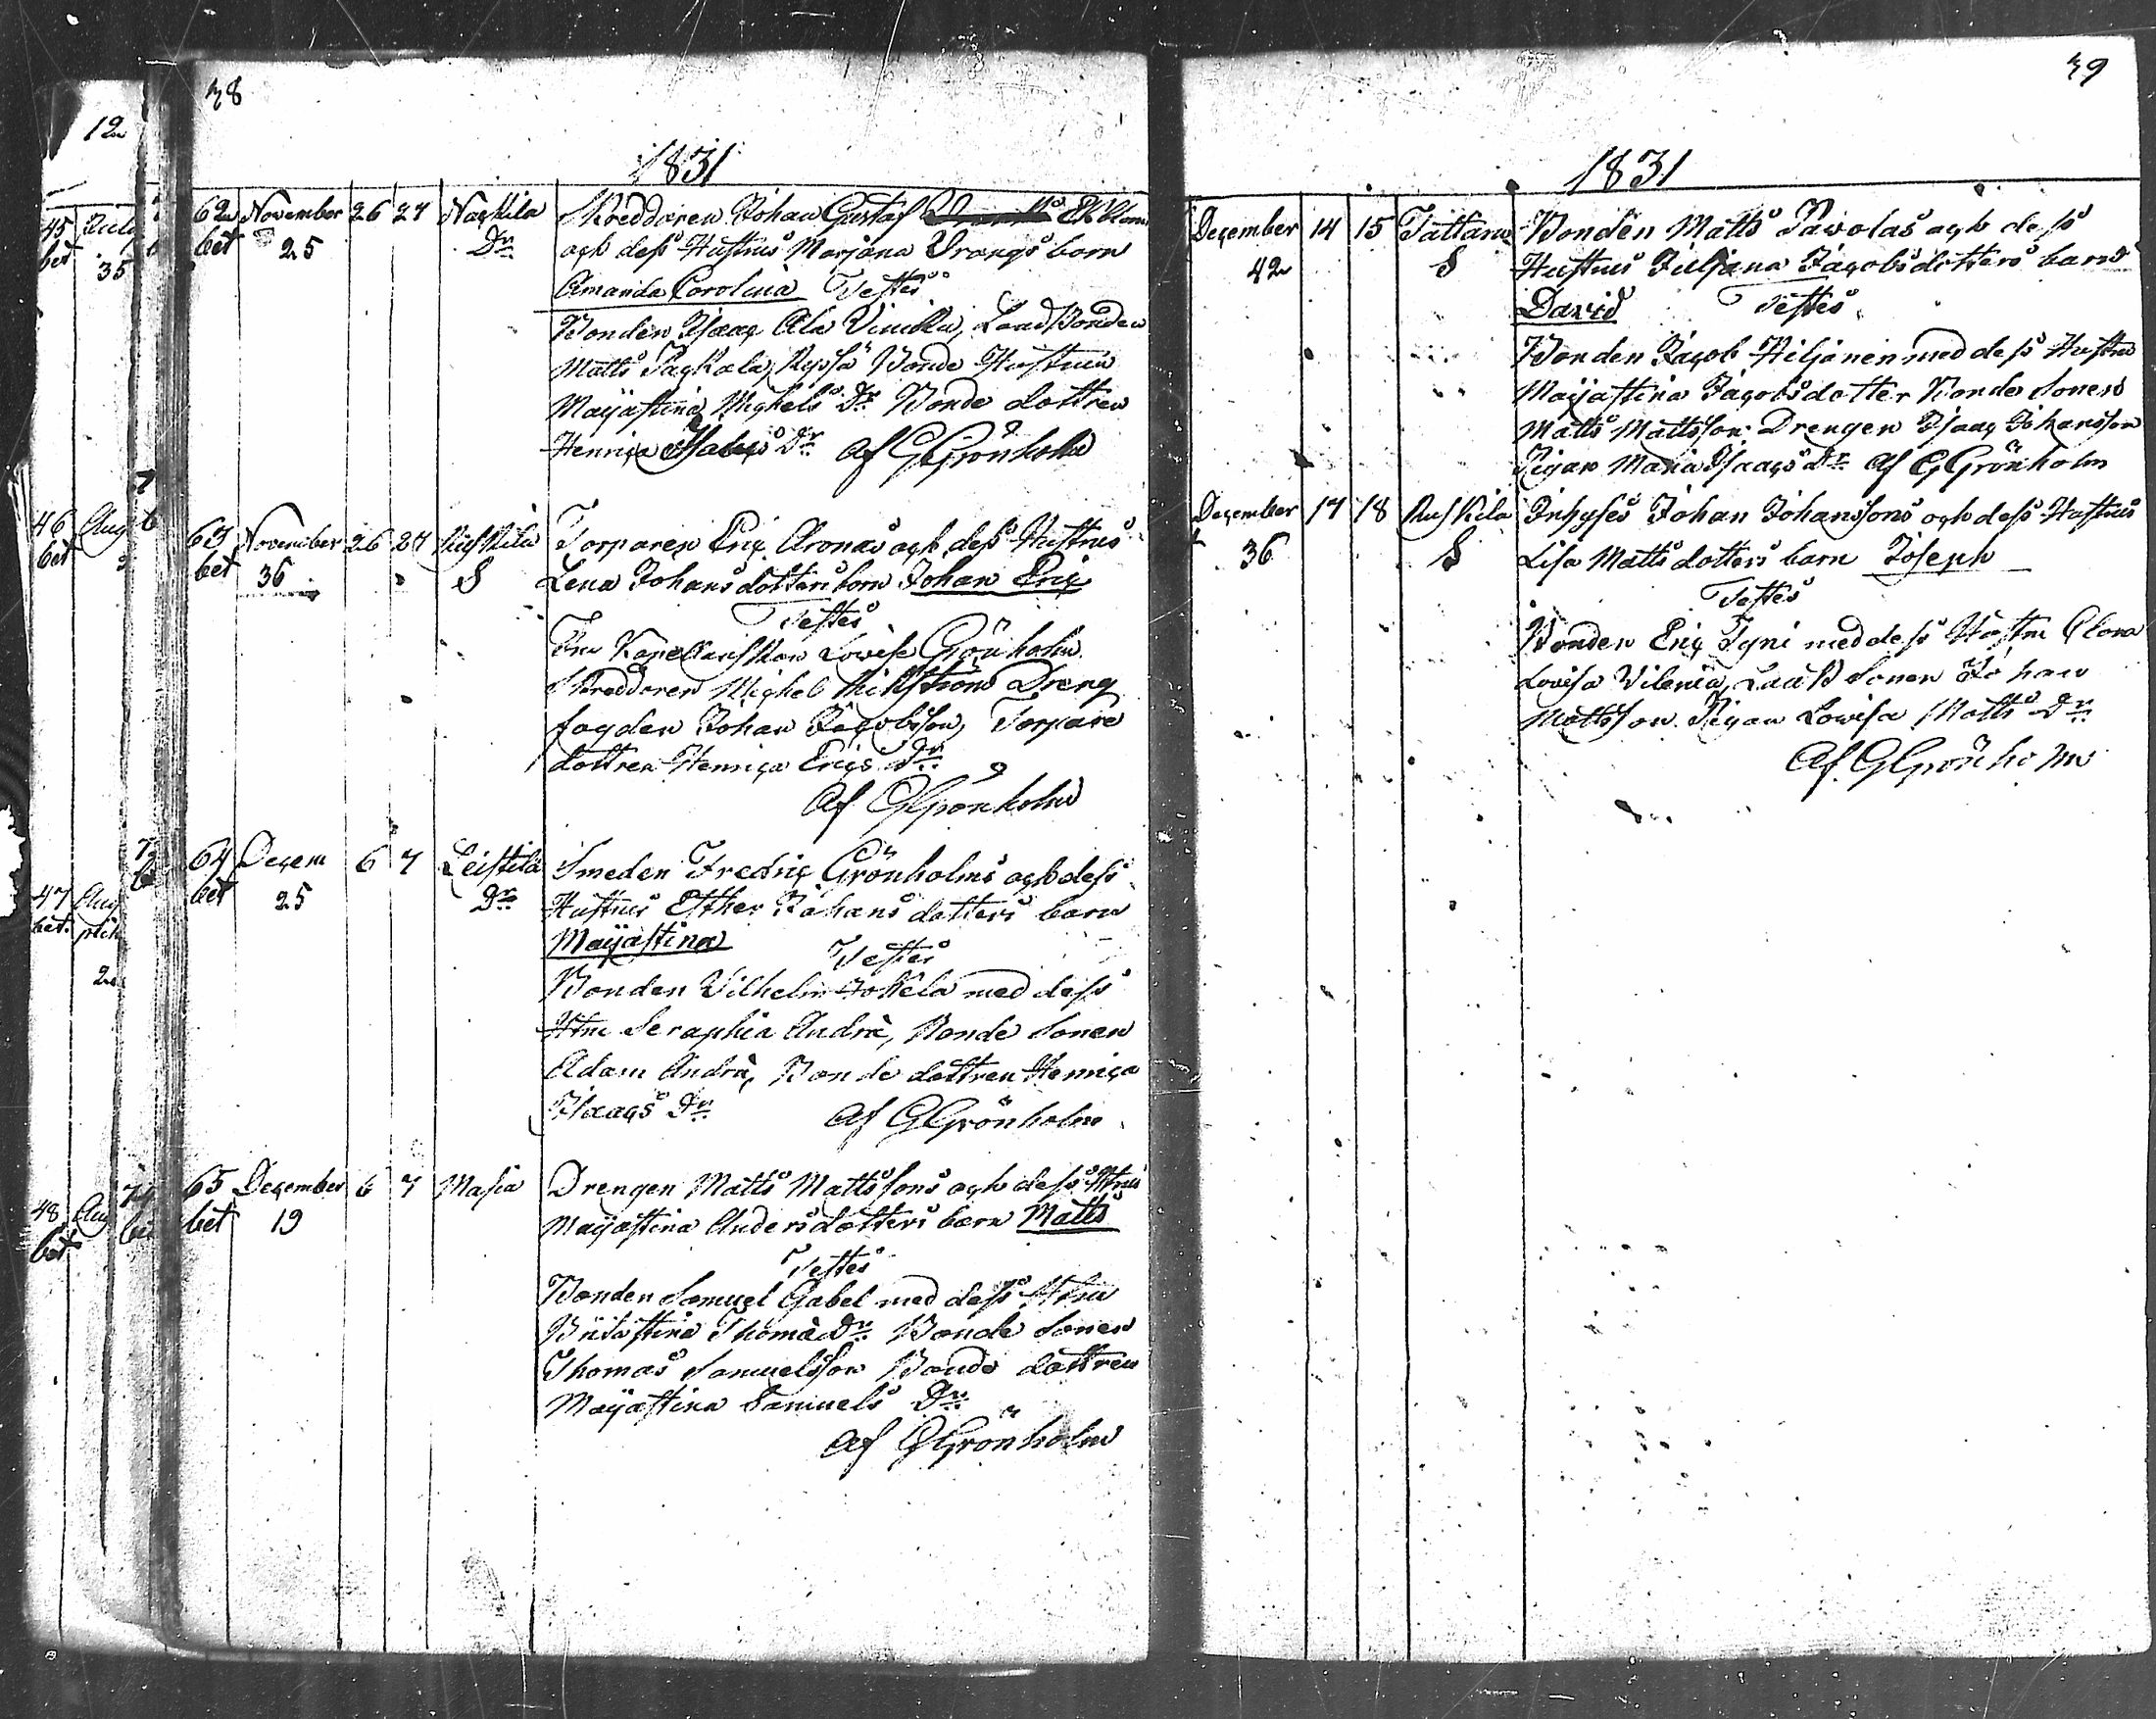 38
1831
62 November 26 27 Naskila Skreddaren Johan Gustaf Ekbloms
bet 25 Dr och dess Hustrus Marjana Vrangs barn
Amanda Carolina Testes
Bonden Isaac Ala Vinikka, Landbonden
Matts Packala, Ryssä Bonde Hustrun
Maijastina Michels Dr Bonde dottren
Henrica Dr af GGrönholm
63 November 26 27 Ruskila Torparen Eric Aronas och dess Hustrus
bet 36 S Lena Johans dotters barn Johan Eric
Testes
Lovisa Grönholm
Skreddaren Michel Dreng
fogden Johan Jacobsson, Torpare
dottren Henrica Erics Dr
af GGrönholm
64 Decem 6 7 Leistila Smeden Fredric Grönholms och dess
bet 25 Dr Hustrus Esther Johans dotters barn
Maijastina Testes
Bonden Vilhelm Jokela med dess
Htru Seraphia Andrà, Bonde Sonen
Adam Andrà, Bonde dottren Henrica
Isaacs Dr af GGrönholm
65 December 6 7 Masia Drengen Matts Mattssons och dess Htrus
bet 19 Maijastina Anders dotters barn Matts
Testes
Bonden Samuel Gabel med dess Htru
Britastina Thomæ Dr Bonde Sonen
Thomas Samuelsson Bonde dottren
Maijastina Samuels Dr
af GGrönholm
12
45 July
bet 35
46 Aug
bet
47 Aug
bet
2
48 Aug
bet
39
1831
December 14 15 Tattara Bonden Matts Pavolas och dess
42 S Hustrus Juljana Jacobsdotters barn
David Testes
Bonden Jacob Hiljanen med dess Hustru
Maijastina Jacobsdotter Bonde Sonen
Matts Mattsson Drengen Isaac Johansson
Pigan Maria Isaacs Dr af GGrönholm
December 17 18 Ruskila Inhyses Johan Johanssons och dess Hustrus
36 S Lisa Matts dotters barn Joseph
Testes
Bonden Eric Tyni med dess Hustru
Lovisa Vilenia, Sonen Johan
Mattsson Pigan Lovisa Matts Dr
Af GGrönholm